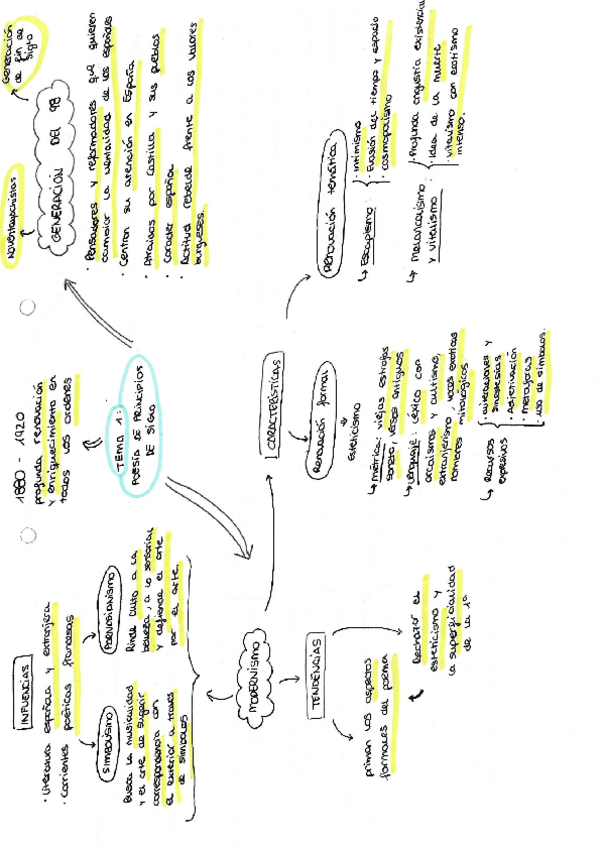 INFLUENCIAS
· Literatura española y extranjera
· Corrientes poéticas francesas
SIMBOLISMO
Busca la musicalidad
y el arte de sugerir
correspondencia con
el exterior a través
de símbolos
PARNASIANISMO
Rinde culto a la
belleza, a lo sensorial
y defiende el arte
por el arte.
1880 - 1920
profunda renovación
y enriquecimiento en
todos los órdenes
TEMA 1:
POESÍA DE PRINCIPIOS
DE SIGLO
NOVENTAYOCHISTAS
Generación
de fin de
siglo
GENERACIÓN DEL 98
· Pensadores y reformadores que quieren
cambiar la mentalidad de los españoles
· Centran su atención en España
· Atraídos por Castilla y sus pueblos
· Carácter español
· Actitud rebelde frente a los valores
burgueses.
MODERNISMO
TENDENCIAS
priman los aspectos
formales del poema
Rechazar el
esteticismo y
la superficialidad
de la 1ª
CARACTERÍSTICAS
Renovación formal
Esteticismo
↳ Métrica: viejas estrofas
soneto, versos antiguos
↳ Lenguaje: léxico con
arcaísmos y cultismo,
extranjerismo, voces exóticas
nombres mitológicos
↳ Recursos
expresivos
· aliteraciones y
sinestesias
· Adjetivación
· metáforas
· uso de símbolos.
Renovación temática
↳ Escapismo:
· intimismo
· Evasión del tiempo y espacio
· cosmopolismo
↳ Melancolismo:
y vitalismo
· Profunda angustia existencial
· Idea de la muerte
· vitalismo con erotismo
intenso.